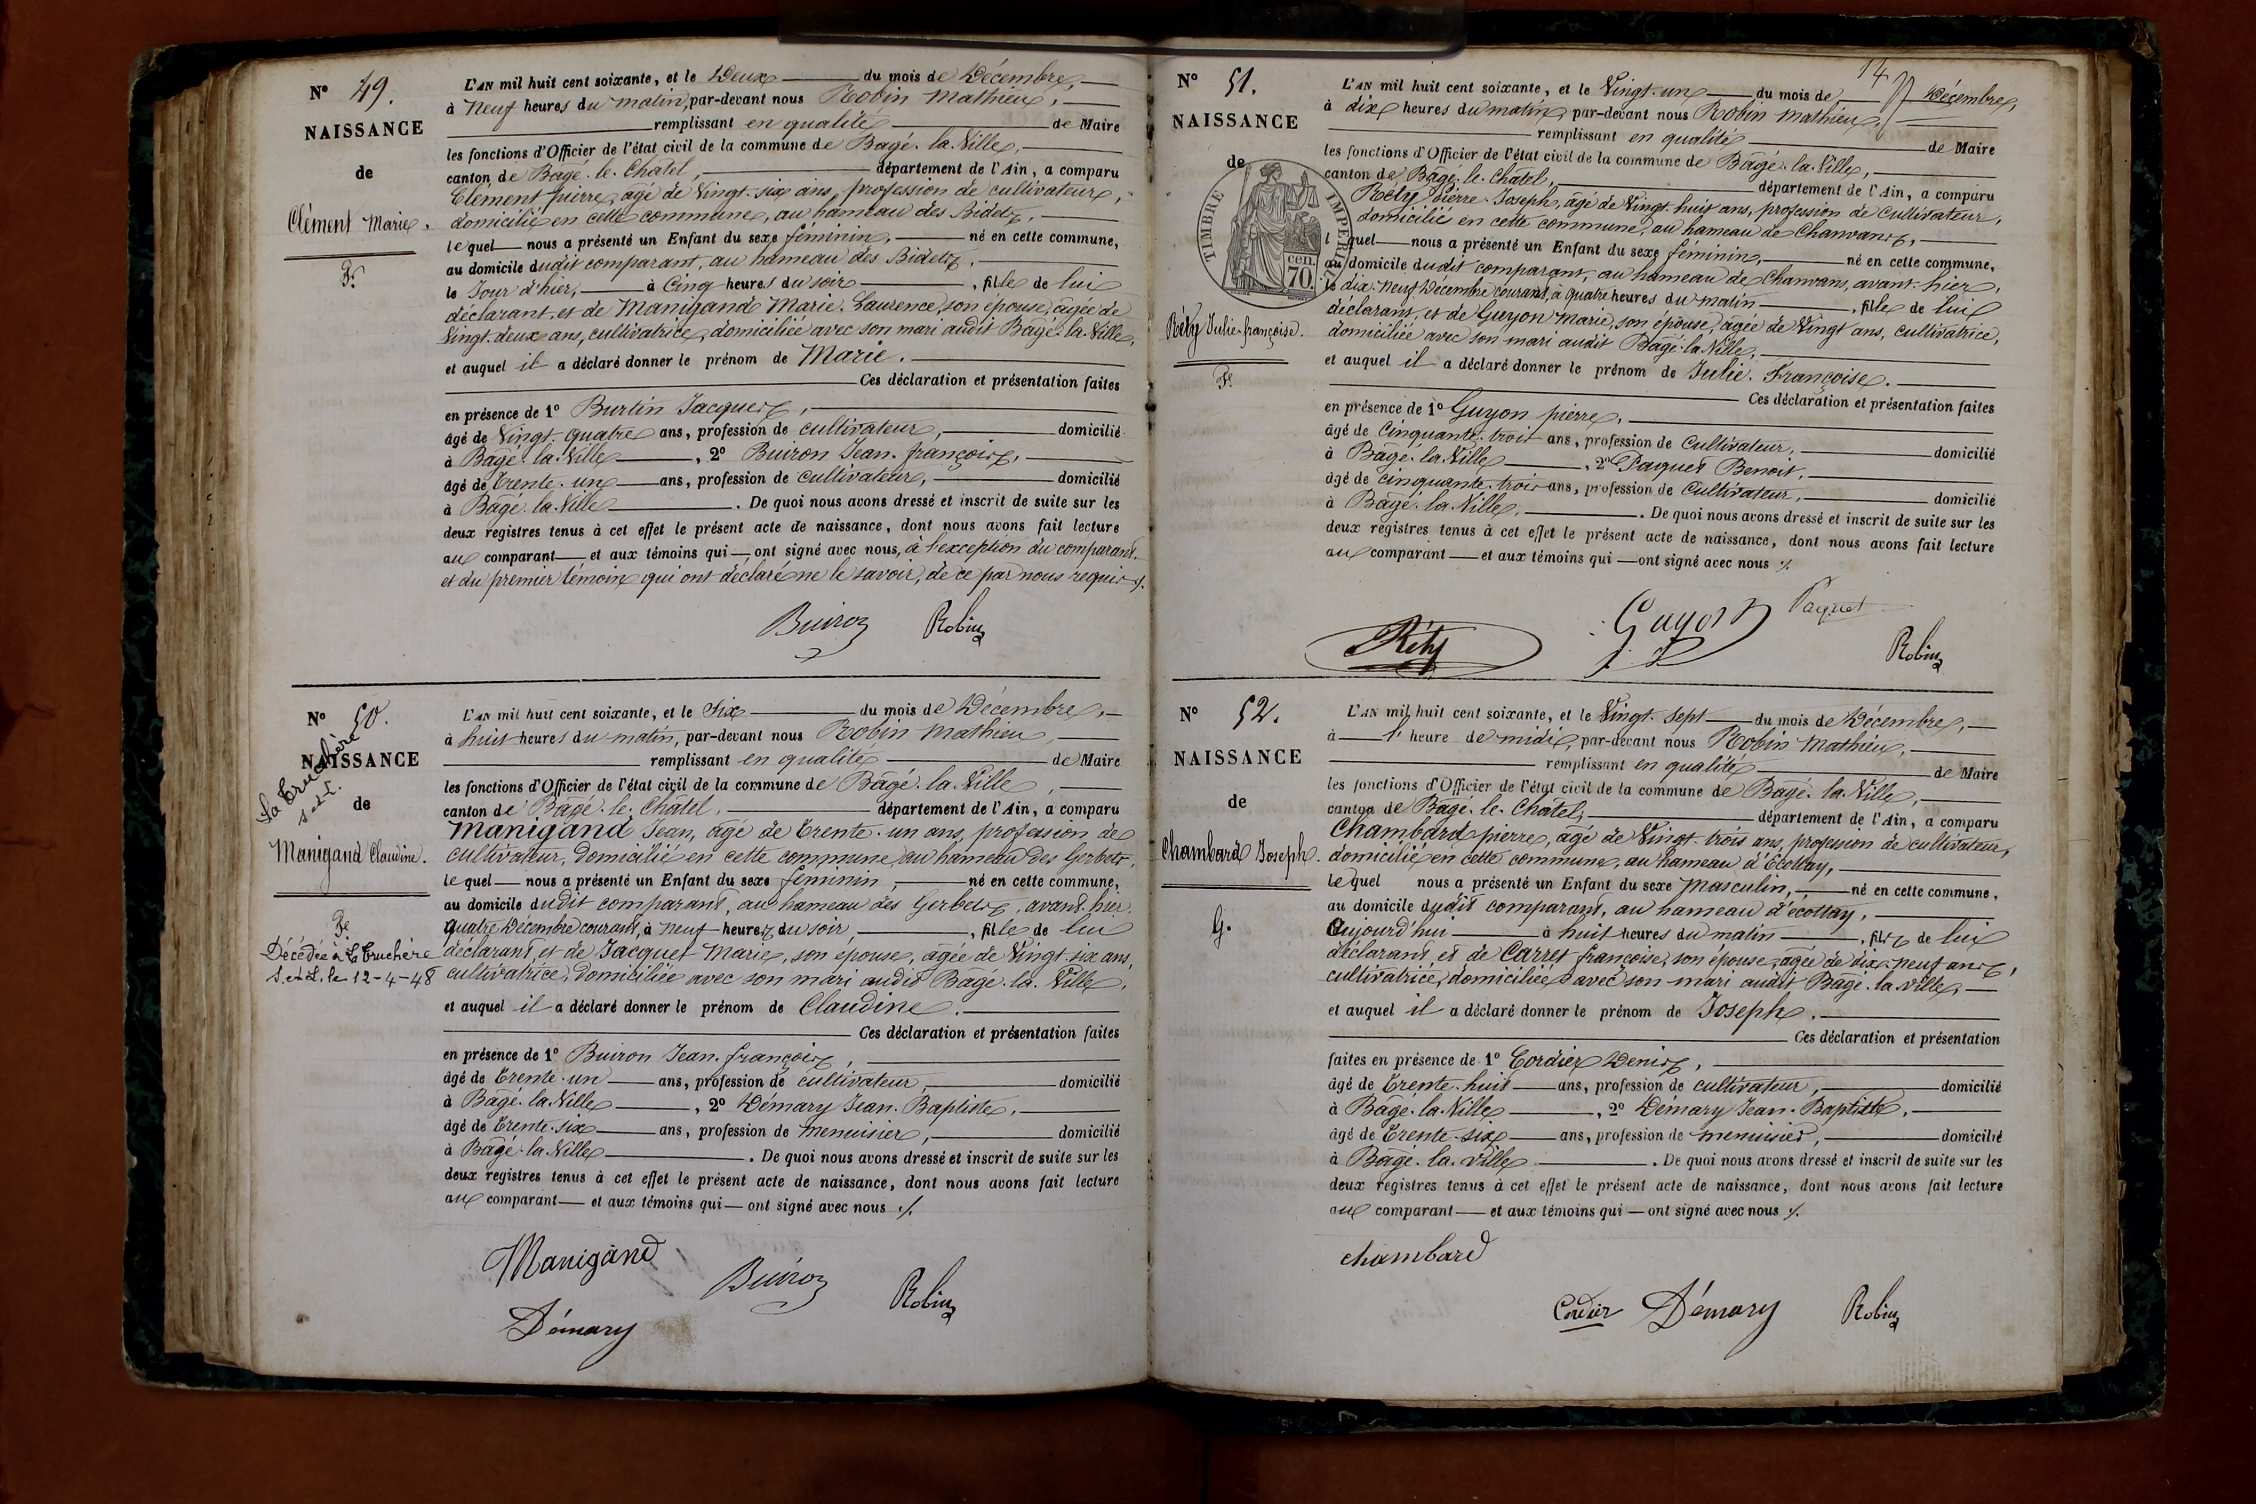 N° 49.
NAISSANCE
de
Clément Marie.
F.
L'AN mil huit cent soixante, et le Deux du mois de Décembre,
à Neuf heures du matin, par-devant nous Robin Mathieu,
remplissant en qualité de Maire
les fonctions d'Officier de l'état civil de la commune de Bagé-la-Ville,
canton de Bagé-le-Chatel, département de l'Ain, a comparu
Clément pierre, agé de Vingt-six ans, profession de cultivateur,
domicilié en cette commune, au hameau des Bidets,
lequel nous a présenté un Enfant du sexe féminin, né en cette commune,
au domicile dudit comparant, au hameau des Bidets,
le Jour d'hier, à Cinq heures du soir, fille de lui
déclarant, et de Manigand Marie-Laurence, son épouse, agée de
Vingt-deux ans, cultivatrice, domiciliée avec son mari audit Bagé-la-Ville,
et auquel il a déclaré donner le prénom de Marie.
Ces déclaration et présentation faites
en présence de 1° Burtin Jacques,
âgé de Vingt-quatre ans, profession de cultivateur, domicilié
à Bagé-la-Ville, 2° Buiron Jean-françois,
âgé de Trente-un ans, profession de cultivateur, domicilié
à Bagé-la-Ville. De quoi nous avons dressé et inscrit de suite sur les
deux registres tenus à cet effet le présent acte de naissance, dont nous avons fait lecture
au comparant et aux témoins qui ont signé avec nous, à l'exception du comparant
et du premier témoin qui ont déclaré ne le savoir, de ce par nous requis ./.
Buiron Robin
N° 50.
La Truchère
S-et-L.
NAISSANCE
de
Manigand Claudine.
F.
Décédée à La Truchère
S.-et-L. le 12-4-48
L'AN mil huit cent soixante, et le Six du mois de Décembre,
à huit heures du matin, par-devant nous Robin Mathieu,
remplissant en qualité de Maire
les fonctions d'Officier de l'état civil de la commune de Bâgé-la-Ville,
canton de Bagé-le-Châtel, département de l'Ain, a comparu
Manigand Jean, âgé de Trente-un ans, profession de
cultivateur, domicilié en cette commune, au hameau des Gerbets,
lequel nous a présenté un Enfant du sexe féminin, né en cette commune,
au domicile dudit comparant, au hameau des Gerbets, avant-hier
quatre Décembre courant, à neuf heures du soir, fille de lui
déclarant, et de Jacquet Marie, son épouse, agée de Vingt-six ans,
cultivatrice, domiciliée avec son mari audit Bagé-la-Ville,
et auquel il a déclaré donner le prénom de Claudine.
Ces déclaration et présentation faites
en présence de 1° Buiron Jean-françois,
âgé de Trente-un ans, profession de cultivateur, domicilié
à Bagé-la-Ville, 2° Démary Jean-Baptiste,
âgé de Trente-six ans, profession de menuisier, domicilié
à Bagé-la-Ville. De quoi nous avons dressé et inscrit de suite sur les
deux registres tenus à cet effet le présent acte de naissance, dont nous avons fait lecture
au comparant et aux témoins qui ont signé avec nous ./.
Manigand Buiron Robin
Démary
14
N° 51.
NAISSANCE
de
TIMBRE IMPERIAL
70. cen.
Réty Julie-françoise.
F.
L'AN mil huit cent soixante, et le Vingt-un du mois de Décembre,
à dix heures du matin, par-devant nous Robin Mathieu,
remplissant en qualité de Maire
les fonctions d'Officier de l'état civil de la commune de Bâgé-la-Ville,
canton de Bâgé-le-Châtel, département de l'Ain, a comparu
Réty Pierre-Joseph, âgé de Vingt-huit ans, profession de Cultivateur,
domicilié en cette commune, au hameau de Chanvans,
lequel nous a présenté un Enfant du sexe féminin, né en cette commune,
au domicile dudit comparant, au hameau de Chanvans, avant-hier,
le dix-neuf Décembre courant, à quatre heures du matin, fille de lui
déclarant, et de Guyon Marie, son épouse, âgée de Vingt ans, cultivatrice,
domiciliée avec son mari audit Bâgé-la-Ville,
et auquel il a déclaré donner le prénom de Julie-Françoise.
Ces déclaration et présentation faites
en présence de 1° Guyon pierre,
âgé de cinquante-trois ans, profession de cultivateur, domicilié
à Bâgé-la-Ville, 2° Paquet Benoit,
âgé de cinquante-trois ans, profession de cultivateur, domicilié
à Bâgé-la-Ville. De quoi nous avons dressé et inscrit de suite sur les
deux registres tenus à cet effet le présent acte de naissance, dont nous avons fait lecture
au comparant et aux témoins qui ont signé avec nous ./.
Réty Guyon Paquet
Robin
N° 52.
NAISSANCE
de
Chambard Joseph.
G.
L'AN mil huit cent soixante, et le Vingt-sept du mois de Décembre,
à l'heure de midi, par-devant nous Robin Mathieu,
remplissant en qualité de Maire
les fonctions d'Officier de l'état civil de la commune de Bâgé-la-Ville,
canton de Bâgé-le-Châtel, département de l'Ain, a comparu
Chambard pierre, âgé de Vingt-trois ans, profession de cultivateur,
domicilié en cette commune, au hameau d'Ecottay,
lequel nous a présenté un Enfant du sexe Masculin, né en cette commune,
au domicile dudit comparant, au hameau d'écottay,
aujourd'hui à huit heures du matin, fils de lui
déclarant, et de Carret françoise, son épouse, agée de dix-neuf ans,
cultivatrice, domiciliée avec son mari audit Bâgé-la-ville,
et auquel il a déclaré donner le prénom de Joseph.
Ces déclaration et présentation
faites en présence de 1° Cordier Denis,
âgé de Trente-huit ans, profession de cultivateur, domicilié
à Bâgé-la-Ville, 2° Démary Jean-Baptiste,
âgé de Trente-six ans, profession de menuisier, domicilié
à Bâgé-la-ville. De quoi nous avons dressé et inscrit de suite sur les
deux registres tenus à cet effet le présent acte de naissance, dont nous avons fait lecture
au comparant et aux témoins qui ont signé avec nous ./.
chambard
Cordier Démary Robin